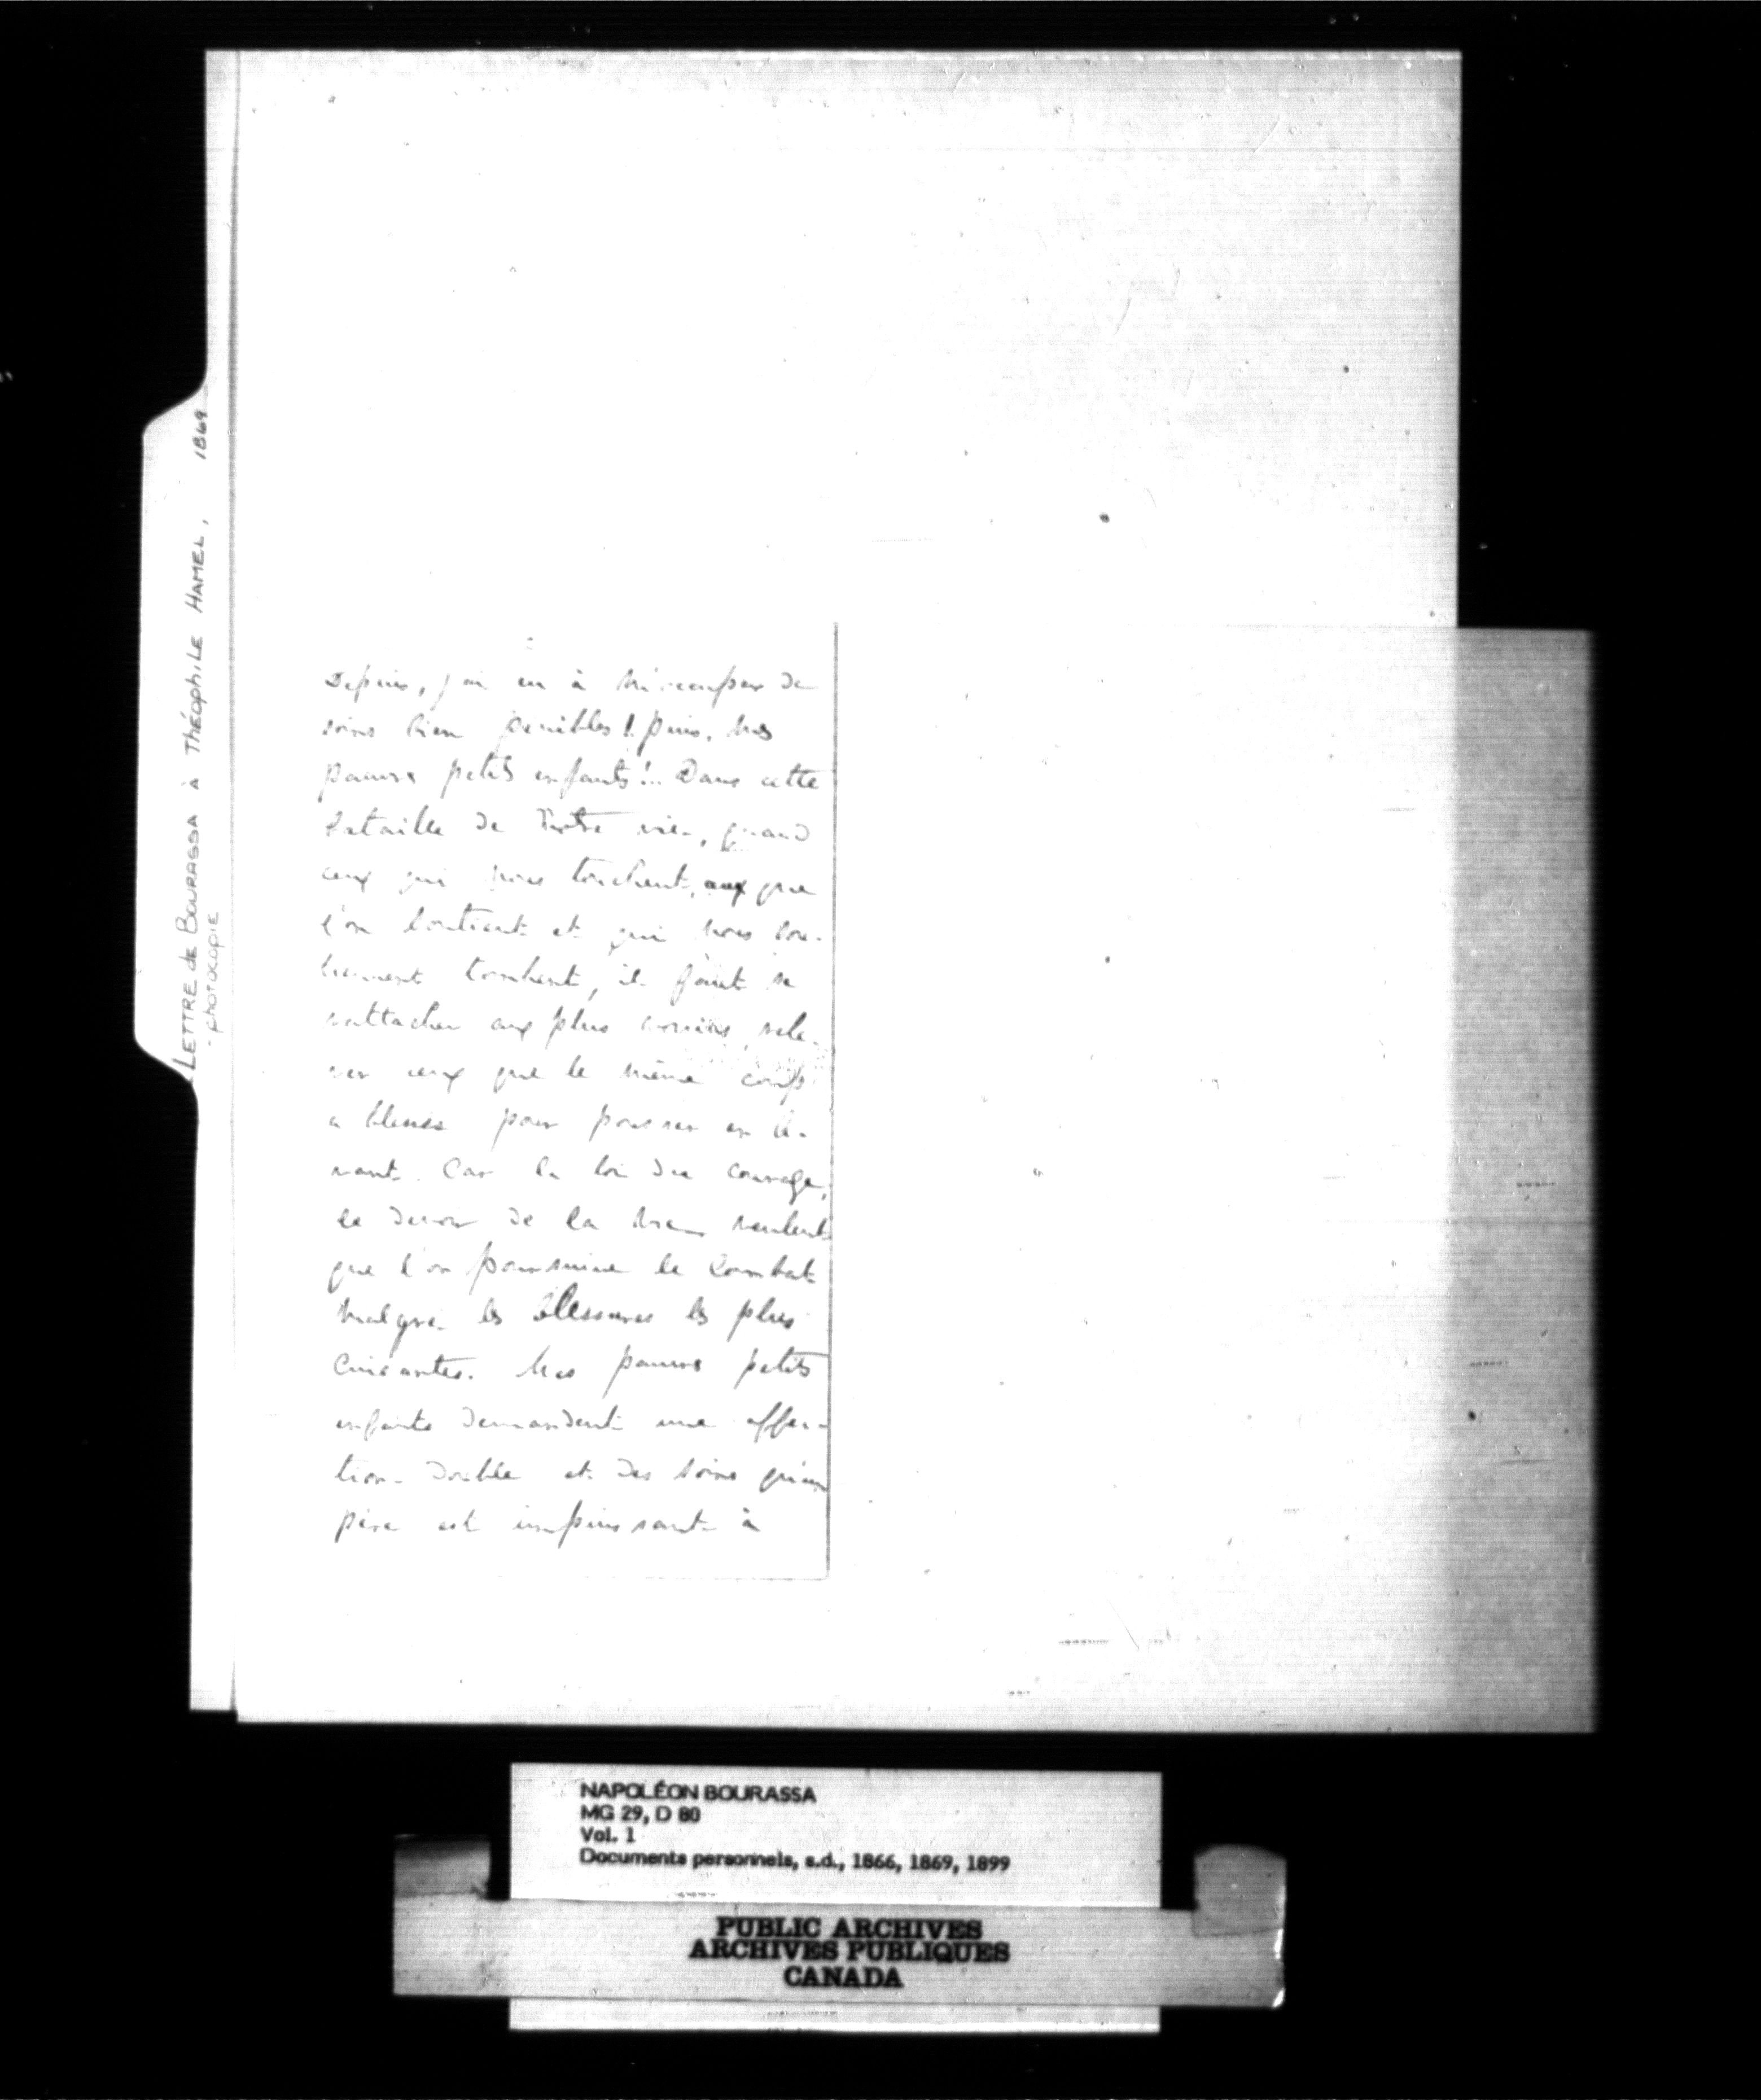 LETTRE de BOURASSA à THÉOPHILE HAMEL, 1869
- photocopie
Depuis, j'ai eu à m'occuper de
soins bien penibles! puis, mes
pauvres petits enfants!... Dans cette
bataille de notre vie, quand
ceux qui nous touchent, ceux que
l'on soutient et qui nous sou-
tiennent tombent, il faut se
rattacher aux plus voisins, rele-
ver ceux que le même coup
a blessés pour pousser en a-
vant. Car la loi du courage,
le devoir de la vie veulent
que l'on poursuive le combat
malgré les blessures les plus
cuisantes. Mes pauvres petits
enfants demandent une affec-
tion double et des soins qu'un
père est impuissant à
NAPOLÉON BOURASSA
MG 29, D 80
Vol. 1
Documents personnels, s.d., 1866, 1869, 1899
PUBLIC ARCHIVES
ARCHIVES PUBLIQUES
CANADA